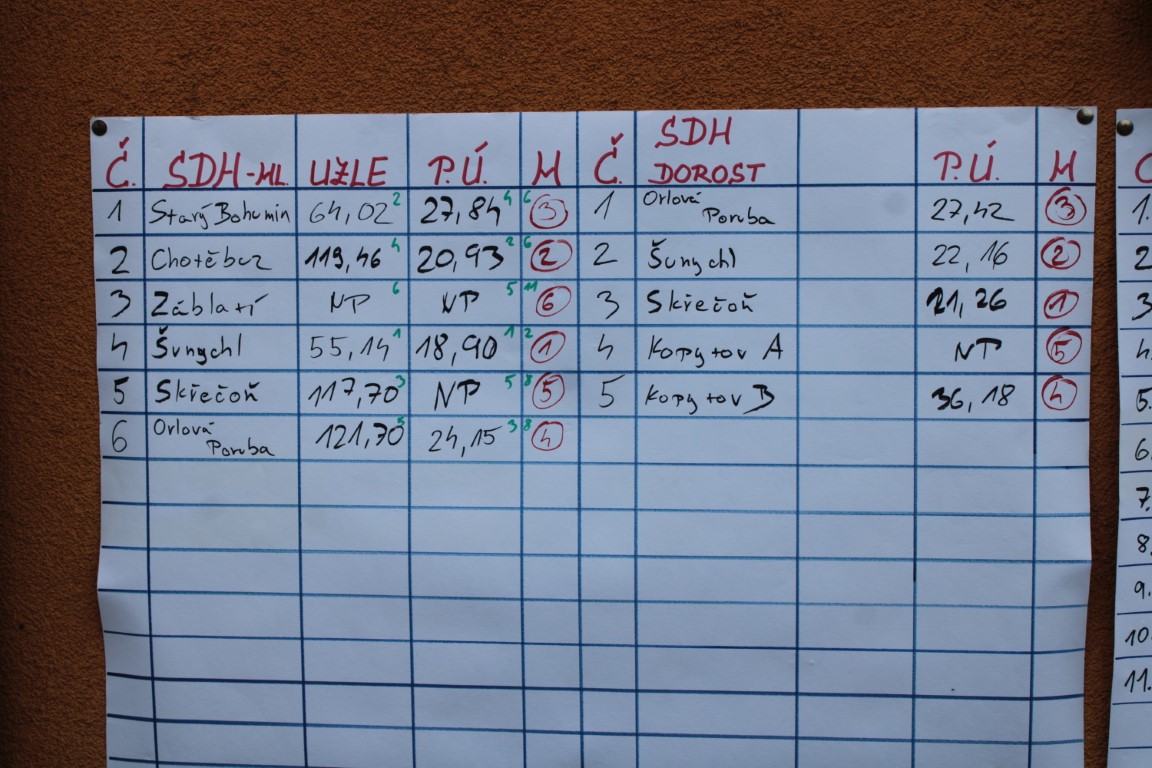 Č. SDH-ML. UZLE P.Ú. M Č. SDH DOROST P.Ú. M
1 Starý Bohumín 64,02 2 27,84 4 6 3 1 Orlová Poruba 27,42 3
2 Chotěbuz 119,46 4 20,93 2 6 2 2 Šunychl 22,16 2
3 Záblatí NP 6 NP 5 11 6 3 Skřečoň 21,26 1
4 Šunychl 55,14 1 18,90 1 2 1 4 Kopytov A NP 5
5 Skřečoň 117,70 3 NP 5 8 5 5 Kopytov B 36,18 4
6 Orlová Poruba 121,70 5 24,15 3 8 4
1.
2
3
4.
5.
6.
7.
8.
9.
10
11.